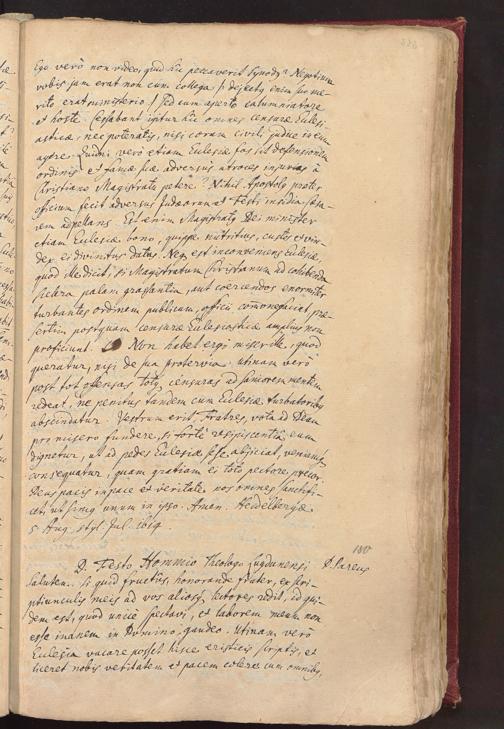 Ego verò non video, quid hic peccaverit Synodus. Negotium
vobis jam erat non cum collega (dejectus enim suo me-
rito erat ministerio) sed cum aperto calumniatore
et hoste. Cessabant igitur hic omnes censurae Eclesi-
asticae, nec poteratis, nisi coram civili judice in eum
agere. Quidni verò etiam Eclesiae fas sit defensionem
ordinis et famae suae adversus atroces injurias à
Christiano Magistratu petere? Nihil Apostolus praeter
officium fecit adversus Judaeorum et Festi insidias, Caesa-
rem appellans. Est enim Magistratus Dei minister
etiam Eclesiae bono, quippe nutritius, custos et vin-
dex ei divinitus datus. Neque est inconveniens Eclesiae,
quod dicit, si Magistratum Christianum ad cohibenda
scelera palam grassantia, aut coercendos enormiter
turbantes ordinem publicum, officii commonefaciat, prae-
sertim postquam censurae Eclesiasticae amplius non
proficiunt. Non habet ergo miser ille, quod
queratur, nisi de sua protervia. utinam verò
post tot offensas totque censuras ad saniorem mentem
redeat, ne penitus tandem cum Eclesiae turbatoribus
abscindatur. Vestrum erit, Fratres, vota ad Deum
pro misero fundere, si fortè resipiscentia eum
dignetur, ut ad pedes Eclesiae sese abjiciat, veniamque
consequatur, quam gratiam ei toto pectore precor.
Deus pacis in pace et veritate nos omnes sanctifi-
cet, ut simus unum in ipso. Amen. Heidelbergae
5 Aug. styl. Jul. 1614.
D. Festo Hommio Theologo Lugdunensi D. Pareus
Salutem. Si quid fructus, honorande frater, ex scri-
ptiunculis meis ad vos aliosque lectores redit, id qui-
dem est, quod unicè spectavi, et laborem meum non
esse inanem in Domino, gaudeo. Utinam verò
Eclesia vacare posset hisce eristicis scriptis, et
liceret nobis veritatem et pacem colere cum omnibus,